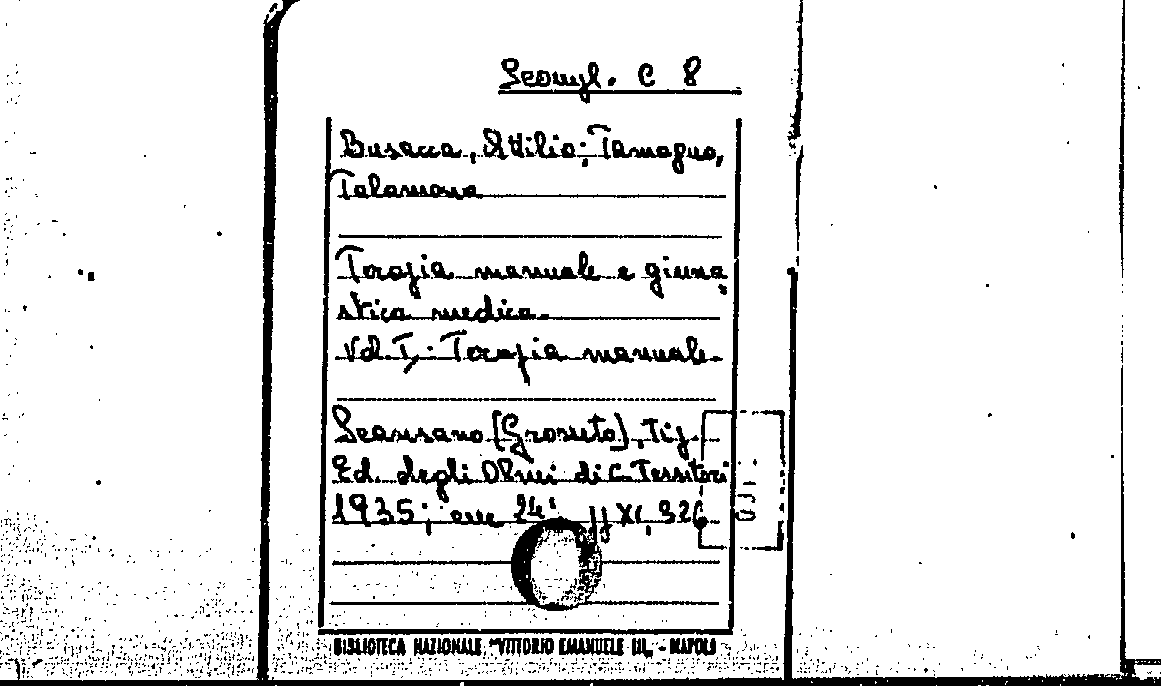 C 8
Busacca, Attilio; Tamagno,
Talamona
Terapia manuale e ginna
stica medica.
Vol. I,: Terapia manuale.
Scansano (Grosseto), Tip.
Ed. degli Olmi di C. Tessitori
1935; 24° pp XI, 326
BIBLIOTECA NAZIONALE "VITTORIO EMANUELE III„ - NAPOLI